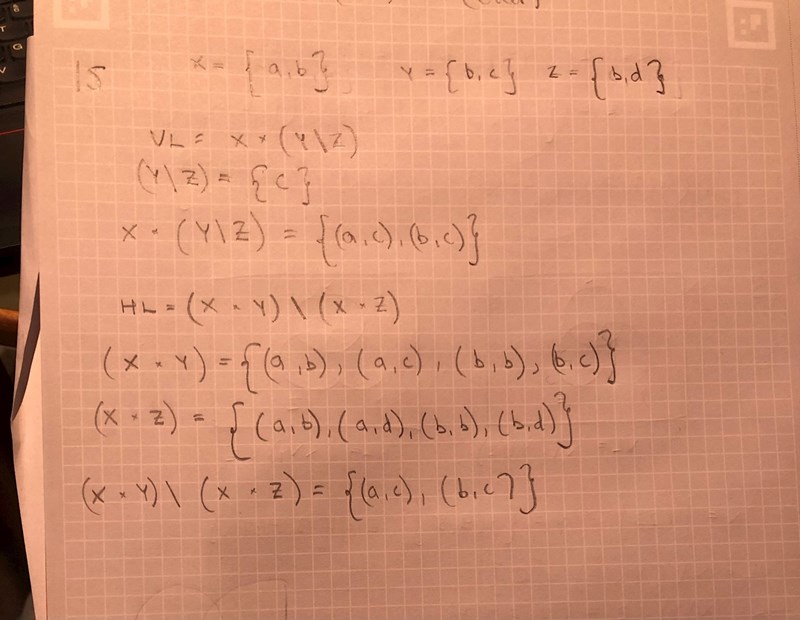 15 X = {a,b} Y = {b,c} Z = {b,d}
VL = X × (Y\Z)
(Y\Z) = {c}
X × (Y\Z) = {(a,c),(b,c)}
HL = (X × Y) \ (X × Z)
(X × Y) = {(a,b), (a,c), (b,b), (b,c)}
(X × Z) = {(a,b),(a,d),(b,b),(b,d)}
(X × Y) \ (X × Z) = {(a,c), (b,c)}